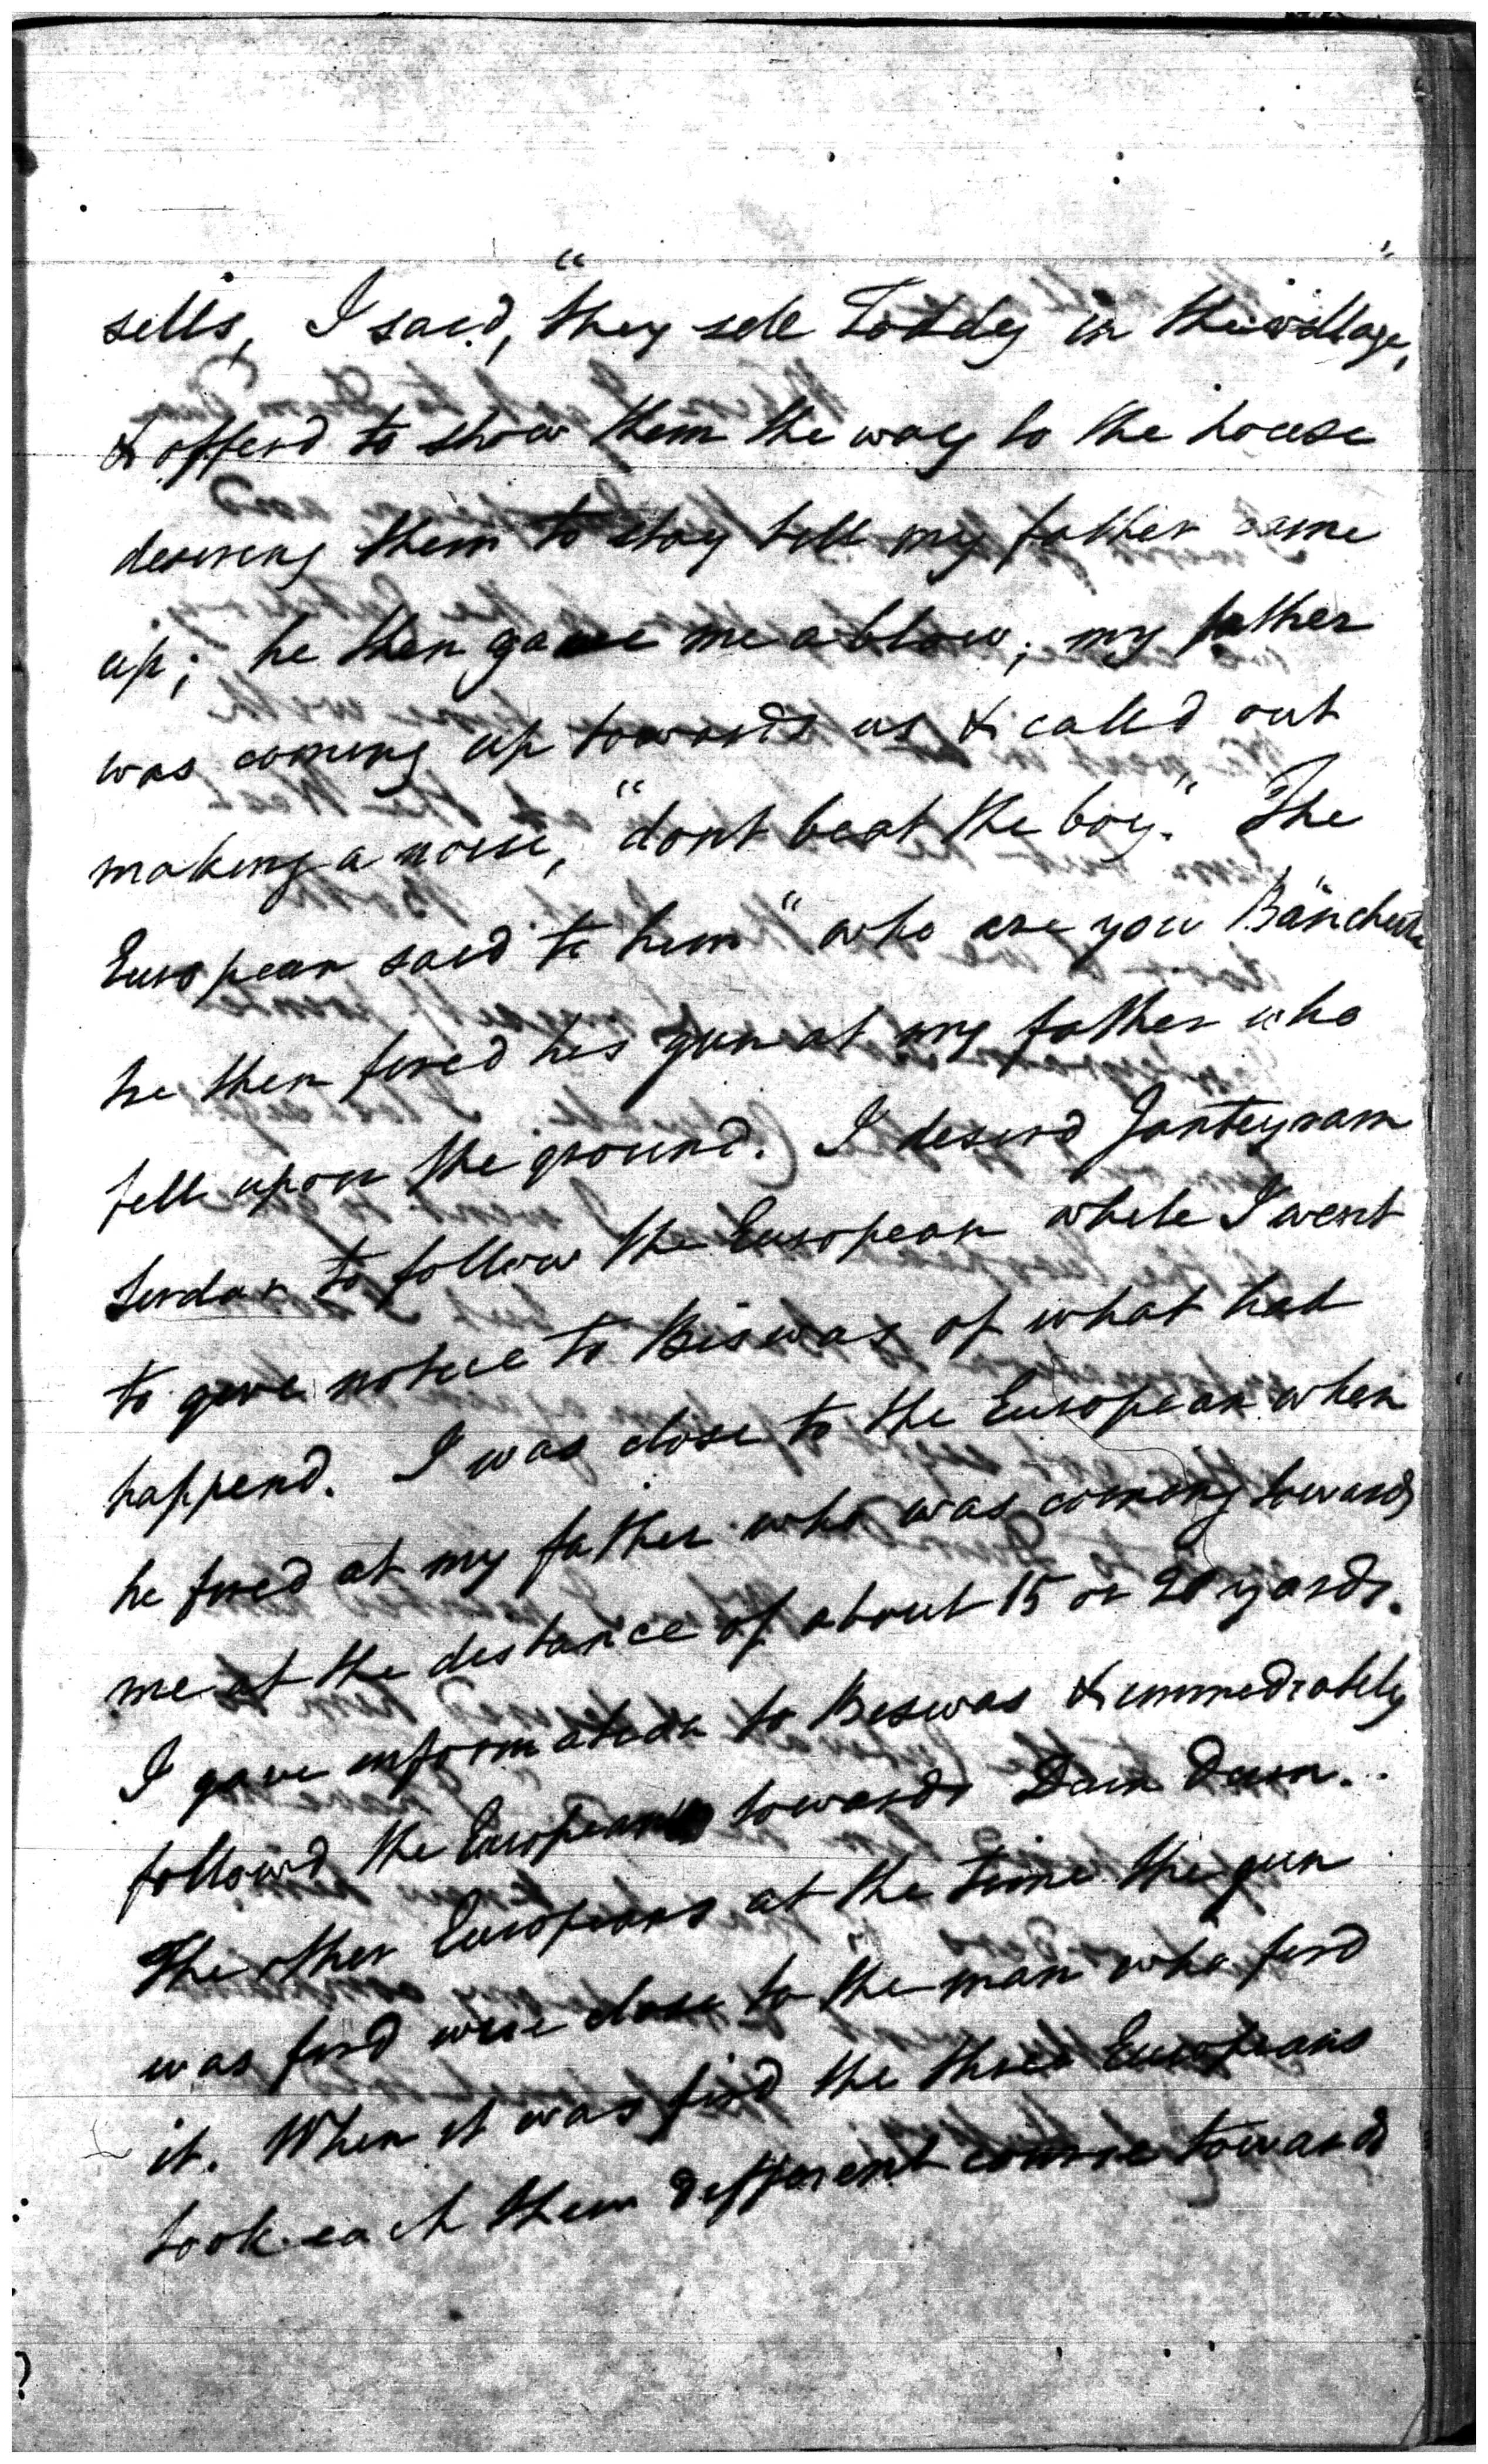 sells, I said, "they sell Toddy in the village,"
& offerd to show them the way to the house
desiring them to stay till my father came
up; he then gave me a blow; my father
was coming up towards us & calld out
making a noise, "dont beat the boy." The
European said to him "who are you
he then fired his gun at my father who
fell upon the ground. I desird Janteyram
Serdar to follow the European while I went
to give notice to Biswas of what had
happend. I was close to the European when
he fired at my father who was coming towards
me at the distance of about 15 or 20 yards.
I gave information to Biswas & immediately
followd the European towards Dum Dum.
The other Europeans at the time the gun
was fird were close to the man who fird
it. When it was fird the three Europeans
took each them different course towards